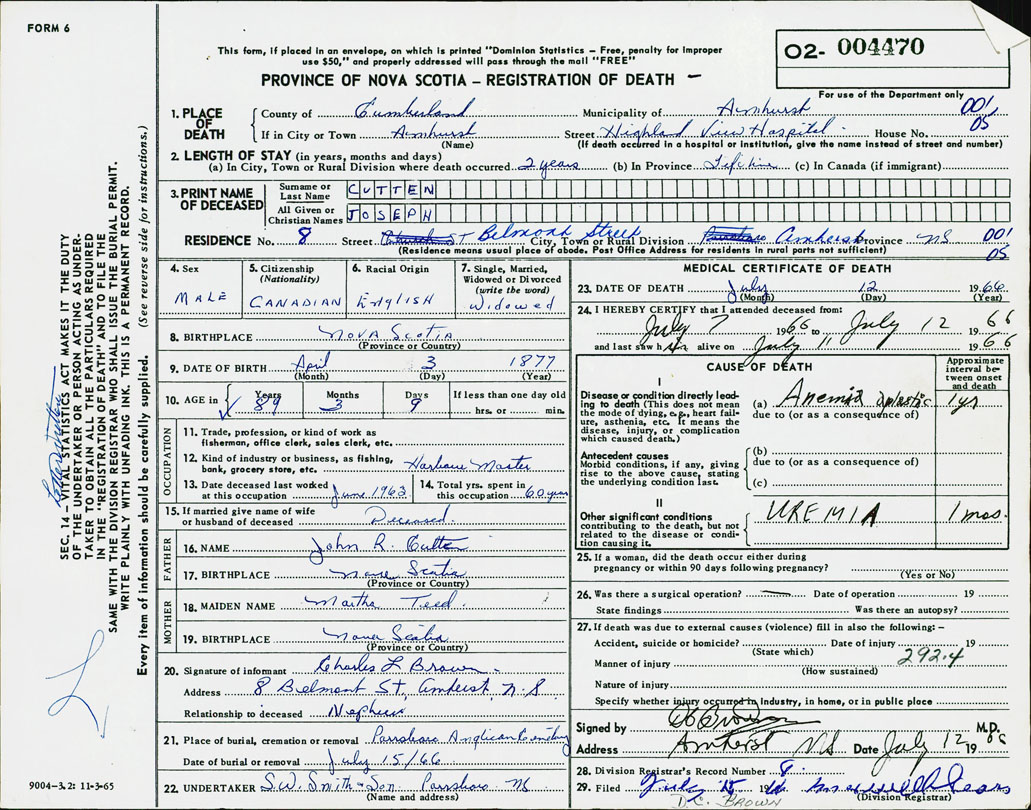 FORM 6
This form, if placed in an envelope, on which is printed "Dominion Statistics – Free, penalty for improper
use $50," and properly addressed will pass through the mail "FREE"
O2- 004470
PROVINCE OF NOVA SCOTIA – REGISTRATION OF DEATH –
For use of the Department only
1. PLACE OF DEATH
County of Cumberland Municipality of Amherst 001
If in City or Town Amherst Street Highland View Hospital House No. 05
(Name) (If death occurred in a hospital or institution, give the name instead of street and number)
2. LENGTH OF STAY (in years, months and days)
(a) In City, Town or Rural Division where death occurred 2 years (b) In Province Lifetime (c) In Canada (if immigrant)
3. PRINT NAME OF DECEASED
Surname or Last Name CUTTEN
All Given or Christian Names JOSEPH
RESIDENCE No. 8 Street Church ST Belmont Street City, Town or Rural Division Parrsboro Amherst Province NS 001
(Residence means usual place of abode. Post Office Address for residents in rural parts not sufficient) 05
4. Sex
MALE
5. Citizenship
(Nationality)
CANADIAN
6. Racial Origin
ENGLISH
7. Single, Married,
Widowed or Divorced
(write the word)
Widowed
8. BIRTHPLACE Nova Scotia
(Province or Country)
9. DATE OF BIRTH April 3 1877
(Month) (Day) (Year)
10. AGE in Years Months Days If less than one day old
89 3 9 hrs. or min.
OCCUPATION
11. Trade, profession, or kind of work as
fisherman, office clerk, sales clerk, etc.
12. Kind of industry or business, as fishing,
bank, grocery store, etc. Harbour Master
13. Date deceased last worked
at this occupation June 1963
14. Total yrs. spent in
this occupation 60 years
15. If married give name of wife
or husband of deceased Deceased.
FATHER
16. NAME John R. Cutten
17. BIRTHPLACE Nova Scotia
(Province or Country)
MOTHER
18. MAIDEN NAME Martha Teed
19. BIRTHPLACE Nova Scotia
(Province or Country)
20. Signature of informant Charles L Brown
Address 8 Belmont St, Amherst, N.S
Relationship to deceased Nephew
21. Place of burial, cremation or removal Parrsboro Anglican Cemetery
Date of burial or removal July 15/66
22. UNDERTAKER S.W. Smith & Son Parrsboro NS
(Name and address)
MEDICAL CERTIFICATE OF DEATH
23. DATE OF DEATH July 12 1966
(Month) (Day) (Year)
24. I HEREBY CERTIFY that I attended deceased from:
July 7 1966 to July 12 1966
and last saw him alive on July 11 1966
CAUSE OF DEATH
Approximate interval between onset and death
I
Disease or condition directly leading to death (This does not mean the mode of dying, e.g., heart failure, asthenia, etc. It means the disease, injury, or complication which caused death.)
(a) Anemia aplastic 1 yr
due to (or as a consequence of)
Antecedent causes
Morbid conditions, if any, giving rise to the above cause, stating the underlying condition last.
(b)
due to (or as a consequence of)
(c)
II
Other significant conditions
contributing to the death, but not related to the disease or condition causing it.
UREMIA 1 mos.
25. If a woman, did the death occur either during
pregnancy or within 90 days following pregnancy?
(Yes or No)
26. Was there a surgical operation? — Date of operation 19
State findings Was there an autopsy?
27. If death was due to external causes (violence) fill in also the following: –
Accident, suicide or homicide? Date of injury 19
(State which) 292.4
Manner of injury
(How sustained)
Nature of injury
Specify whether injury occurred in Industry, in home, or in public place
Signed by M.D.
Address Amherst NS Date July 12 1966
28. Division Registrar's Record Number 8
29. Filed July 15 19
(Division Registrar)
D.C. BROWN
SEC. 14 – VITAL STATISTICS ACT MAKES IT THE DUTY
OF THE UNDERTAKER OR PERSON ACTING AS UNDER-
TAKER TO OBTAIN ALL THE PARTICULARS REQUIRED
IN THE "REGISTRATION OF DEATH" AND TO FILE THE
SAME WITH THE DIVISION REGISTRAR WHO SHALL ISSUE THE BURIAL PERMIT.
WRITE PLAINLY WITH UNFADING INK. THIS IS A PERMANENT RECORD.
Every item of information should be carefully supplied. (See reverse side for instructions.)
9004-3.2: 11-3-65